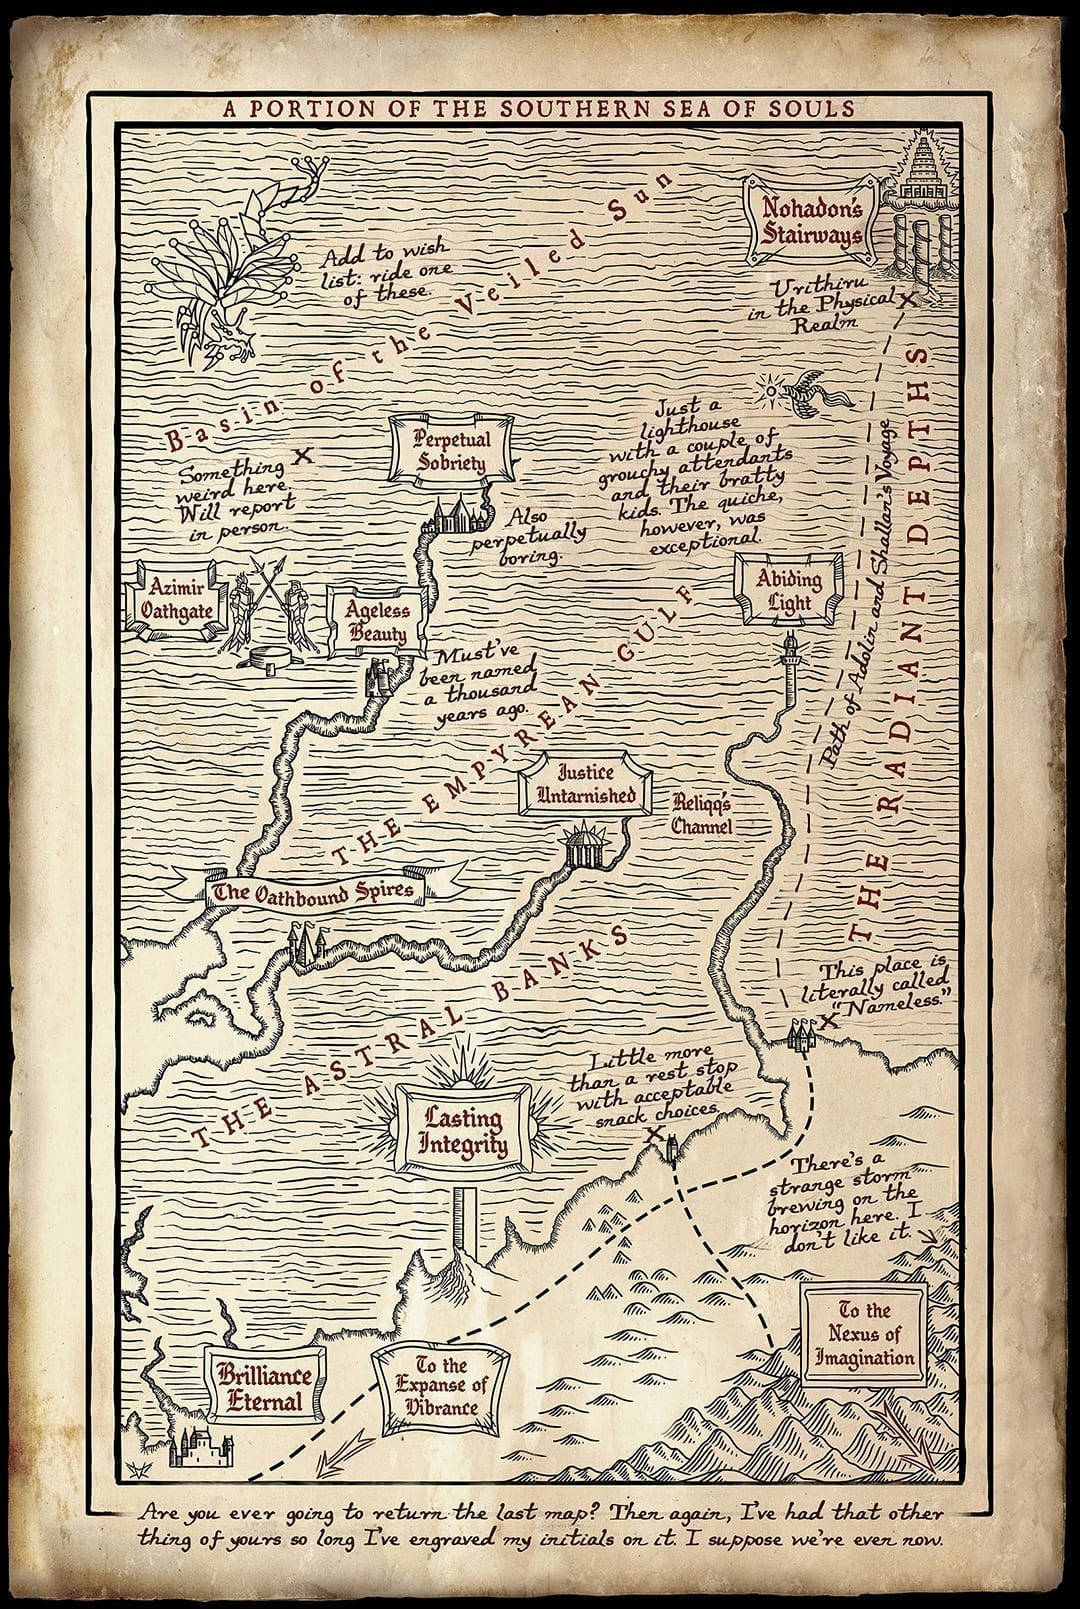 A PORTION OF THE SOUTHERN SEA OF SOULS
Nohadon's
Stairways
Add to wish
list: ride one
of these.
Urithiru
in the Physical
Realm
Basin of the Veiled Sun
Just a
lighthouse
with a couple of
grouchy attendants
and their bratty
kids. The quiche,
however, was
exceptional.
Perpetual
Sobriety
Something
weird here.
Will report
in person.
Also
perpetually
boring.
Azimir
Oathgate
Ageless
Beauty
Abiding
Light
Must've
been named
a thousand
years ago.
Path of Adolin and Shallan's Voyage
THE RADIANT DEPTHS
THE EMPYREAN GULF
Justice
Untarnished
Reliqq's
Channel
The Oathbound Spires
THE ASTRAL BANKS
This place is
literally called
"Nameless."
Little more
than a rest stop
with acceptable
snack choices.
Lasting
Integrity
There's a
strange storm
brewing on the
horizon here. I
don't like it.
To the
Nexus of
Imagination
Brilliance
Eternal
To the
Expanse of
Vibrance
Are you ever going to return the last map? Then again, I've had that other
thing of yours so long I've engraved my initials on it. I suppose we're even now.